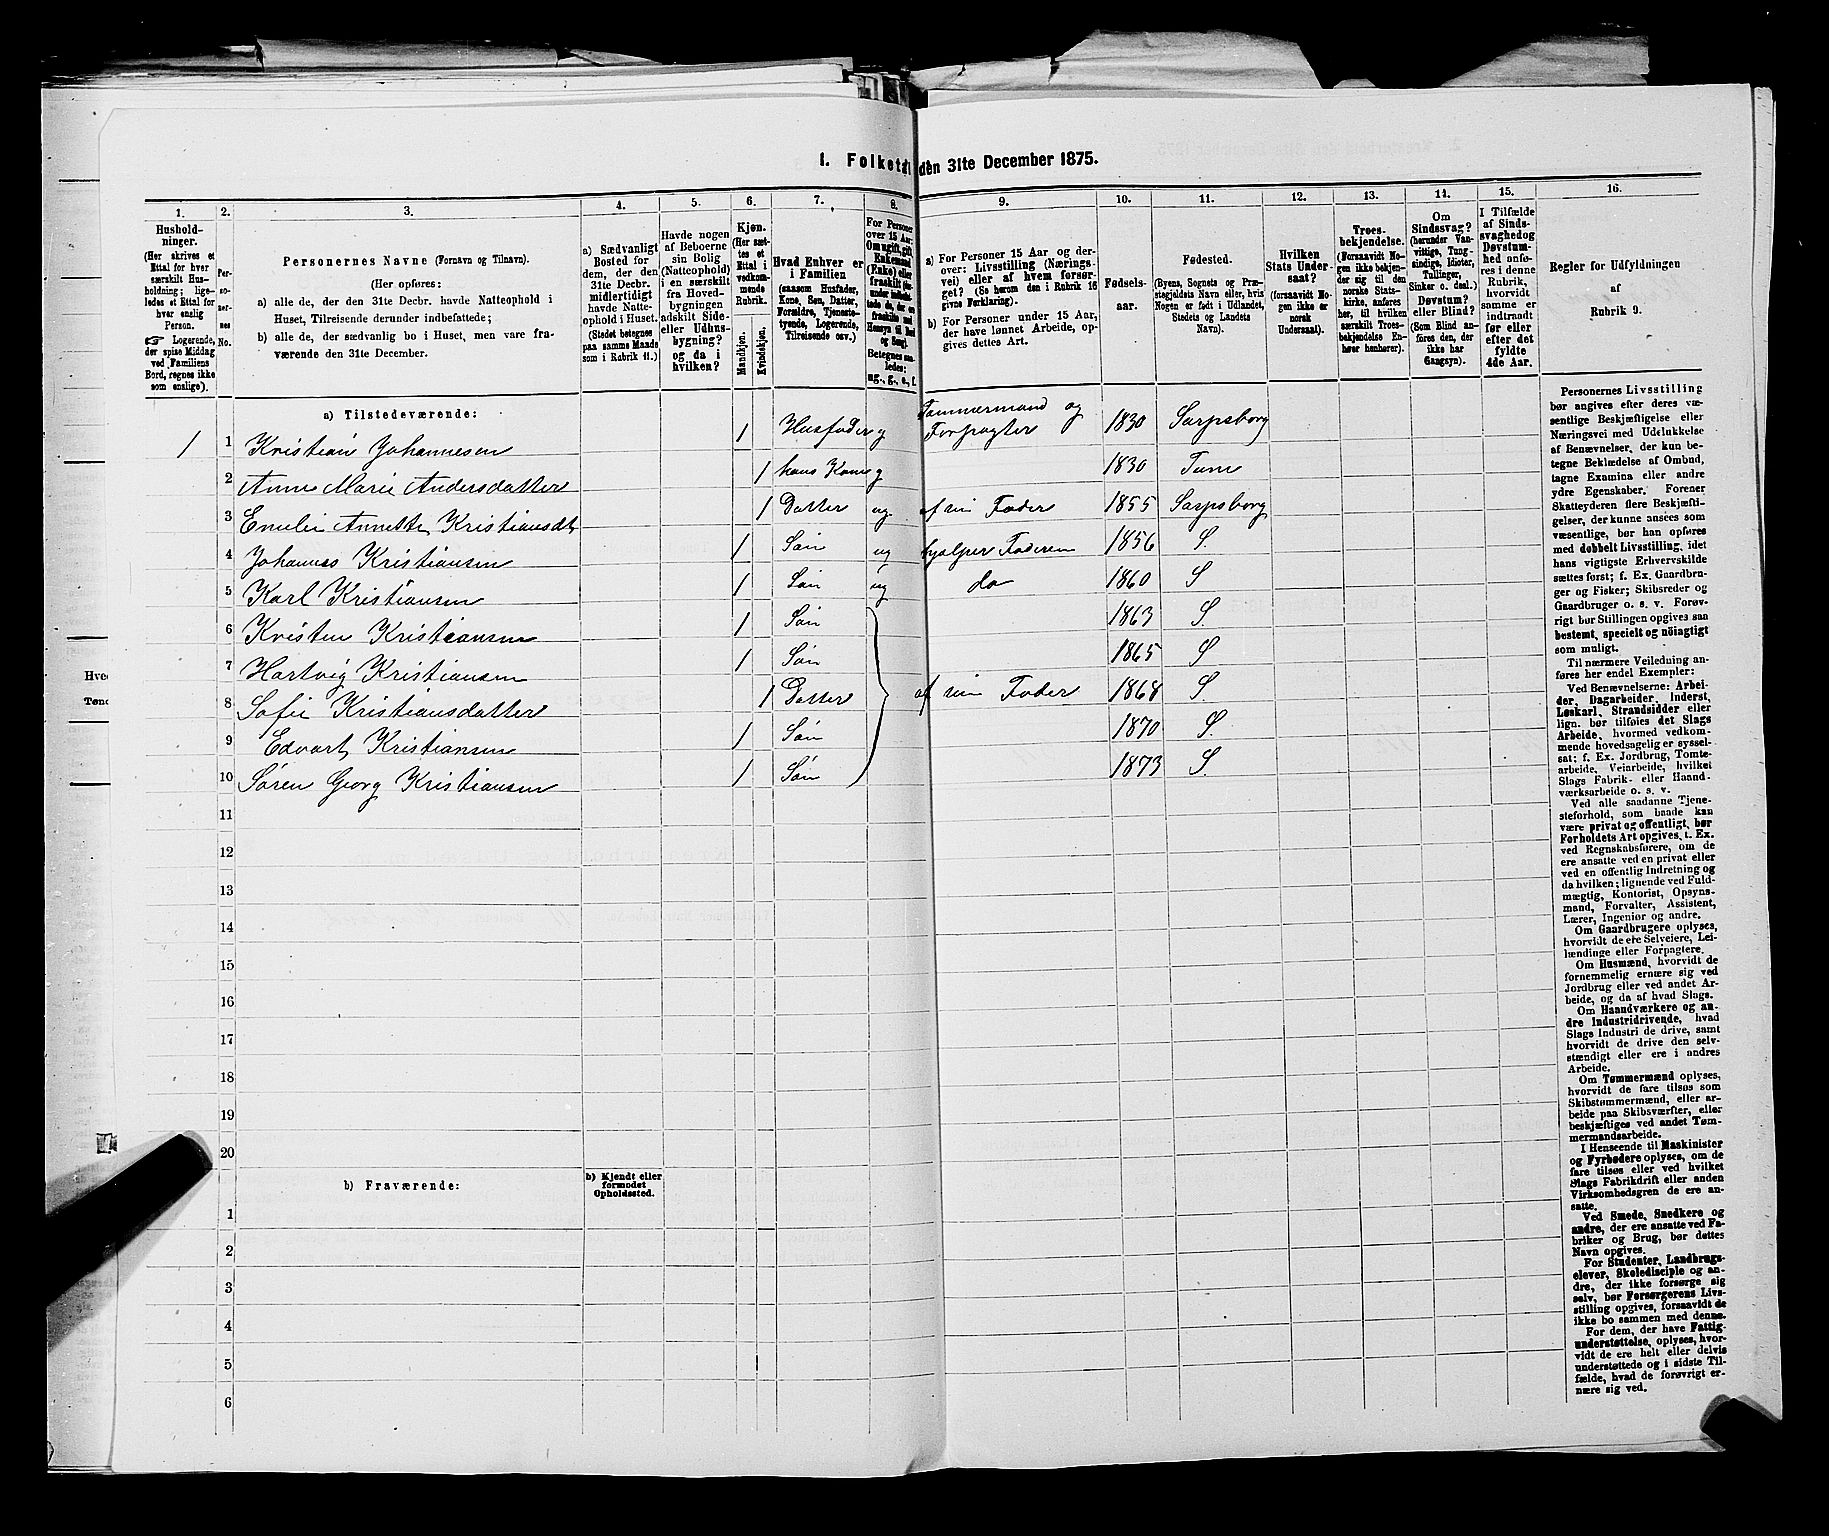 1. Folketal den 31te December 1875.
1. 2. 3. 4. 5. 6. 7. 8. 9. 10. 11. 12. 13. 14. 15. 16.
Hushold-
ninger.
(Her skrives et
Ettal for hver
særskilt Hus-
holdning; lige-
ledes et Ettal for
hver enslig
Person.
☞ Logerende,
der spise Middag
ved Familiens
Bord, regnes ikke
som enslige).
Per-
so-
ner-
nes
No.
Personernes Navne (Fornavn og Tilnavn).
(Her opføres:
a) alle de, der den 31te Decbr. havde Natteophold i
Huset, Tilreisende derunder indbefattede;
b) alle de, der sædvanlig bo i Huset, men vare fra-
værende den 31te December.
a) Sædvanligt
Bosted for
dem, der den
31te Decbr.
midlertidigt
havde Natte-
ophold i Huset.
(Stedet betegnes
paa samme Maade
som i Rubrik 11.)
Havde nogen
af Beboerne
sin Bolig
(Natteophold)
i en særskilt
fra Hoved-
bygningen
adskilt Side-
eller Udhus-
bygning?
og da i
hvilken?
Kjøn.
(Her sæt-
tes et
Ettal i
vedkom-
mende
Rubrik.
Mandkjøn.
Kvindekjøn.
Hvad Enhver er
i Familien
(saasom Husfader,
Kone, Søn, Datter,
Forældre, Tjeneste-
tyende, Logerende,
Tilreisende osv.)
For Personer
over 15 Aar:
Om ugift, gift,
Enkemand
(Enke) eller
fraskilt
Betegnes saa-
ledes:
ug., g., e., f.
a) For Personer 15 Aar og der-
over: Livsstilling (Nærings-
vei) eller af hvem forsør-
get? (Se herom den i Rubrik 16
givne Forklaring).
b) For Personer under 15 Aar,
der have lønnet Arbeide, op-
gives dettes Art.
Fødsels-
aar.
Fødested.
(Byens, Sognets og Præ-
stegjeldets Navn eller, hvis
Nogen er født i Udlandet,
Stedets og Landets
Navn).
Hvilken
Stats Under-
saat?
(forsaavidt No-
gen ikke er
norsk
Undersaat).
Troes-
bekjendelse.
(Forsaavidt No-
gen ikke bekjen-
der sig til den
norske Stats-
kirke, anføres
her, til hvilken
særskilt Troes-
bekjendelse En-
hver henhører).
Om
Sindssvag?
(herunder Van-
vittige, Tung-
sindige, Idioter,
Tullinger,
Sinker o. desl.)
Døvstum?
eller Blind?
(Som Blind an-
føres den, der
ikke har
Gangsyn).
I Tilfælde
af Sinds-
svaghed og
Døvstum-
hed anfø-
res i denne
Rubrik,
hvorvidt
samme er
indtraadt
før eller
efter det
fyldte
4de Aar.
Regler for Udfyldningen
af
Rubrik 9.
a) Tilstedeværende:
1 1 Kristian Johannesen 1 Husfader g Tømmermand og
Forpagter 1830 Sarpsborg
2 Anne Marie Andersdatter 1 hans Kone g 1830 Tune
3 Emilie Annette Kristiansdt 1 Datter ug af sin Fader 1855 Sarpsborg
4 Johannes Kristiansen 1 Søn ug hjælper Faderen 1856 S.
5 Karl Kristiansen 1 Søn ug do 1860 S
6 Kristen Kristiansen 1 Søn 1863 S.
7 Hartvig Kristiansen 1 Søn 1865 S
8 Sofie Kristiansdatter 1 Datter af sin Fader 1868 S.
9 Edvart Kristiansen 1 Søn 1870 S.
10 Søren Georg Kristiansen 1 Søn 1873 S.
11
12
13
14
15
16
17
18
19
20
b) Fraværende:
b) Kjendt eller
formodet
Opholdssted.
1
2
3
4
5
6
Personernes Livsstilling
bør angives efter deres væ-
sentlige Beskjæftigelse eller
Næringsvei med Udelukkelse
af Benævnelser, der kun be-
tegne Beklædelse af Ombud,
tagne Examina eller andre
ydre Egenskaber. Forener
Skatteyderen flere Beskjæfti-
gelser, der kunne ansees som
væsentlige, bør han opføres
med dobbelt Livsstilling, idet
hans vigtigste Erhvervskilde
sættes først; f. Ex. Gaardbru-
ger og Fisker; Skibsreder og
Gaardbruger o. s. v. Forøv-
rigt bør Stillingen opgives saa
bestemt, specielt og nöiagtigt
som muligt.
Til nærmere Veiledning an-
føres her endel Exempler:
Ved Benævnelserne: Arbei-
der, Dagarbeider, Inderst,
Løskarl, Strandsidder eller
lign. bør tilføies det Slags
Arbeide, hvormed vedkom-
mende hovedsagelig er syssel-
sat; f. Ex. Jordbrug, Tomte-
arbeide, Veiarbeide, hvilket
Slags Fabrik- eller Haand-
værksarbeide o. s. v.
Ved alle saadanne Tjene-
steforhold, som baade kan
være privat og offentligt, bør
Forholdets Art opgives, f. Ex.
ved Regnskabsførere, om de
ere ansatte ved en privat eller
ved en offentlig Indretning og
da hvilken; lignende ved Fuld-
mægtig, Kontorist, Opsyns-
mand, Forvalter, Assistent,
Lærer, Ingeniør og andre.
Om Gaardbrugere oplyses,
hvorvidt de ere Selveiere, Lei-
lændinge eller Forpagtere.
Om Husmænd, hvorvidt de
fornemmelig ernære sig ved
Jordbrug eller ved andet Ar-
beide, og da af hvad Slags.
Om Haandværkere og an-
dre Industridrivende, hvad
Slags Industri de drive, samt
hvorvidt de drive den selv-
stændigt eller ere i andres
Arbeide.
Om Tømmermænd oplyses,
hvorvidt de fare tilsøs som
Skibstømmermænd, eller ar-
beide paa Skibsværfter, eller
beskjæftiges ved andet Tøm-
mermandsarbeide.
I Henseende til Maskinister
og Fyrbødere oplyses, om de
fare tilsøs eller ved hvilket
Slags Fabrikdrift eller anden
Virksomhedsgren de ere an-
satte.
Ved Smede, Snedkere og
andre, der ere ansatte ved Fa-
briker og Brug, bør dettes
Navn opgives.
For Studenter, Landbrugs-
elever, Skoledisciple og an-
dre, der ikke forsørge sig
selv, bør Forsørgerens Livs-
stilling opgives, forsaavidt de
ikke bo sammen med denne.
For dem, der have Fattig-
understøttelse, oplyses, hvor-
vidt de ere helt eller delvis
understøttede og i sidste Til-
fælde, hvad de forøvrigt er-
nære sig ved.